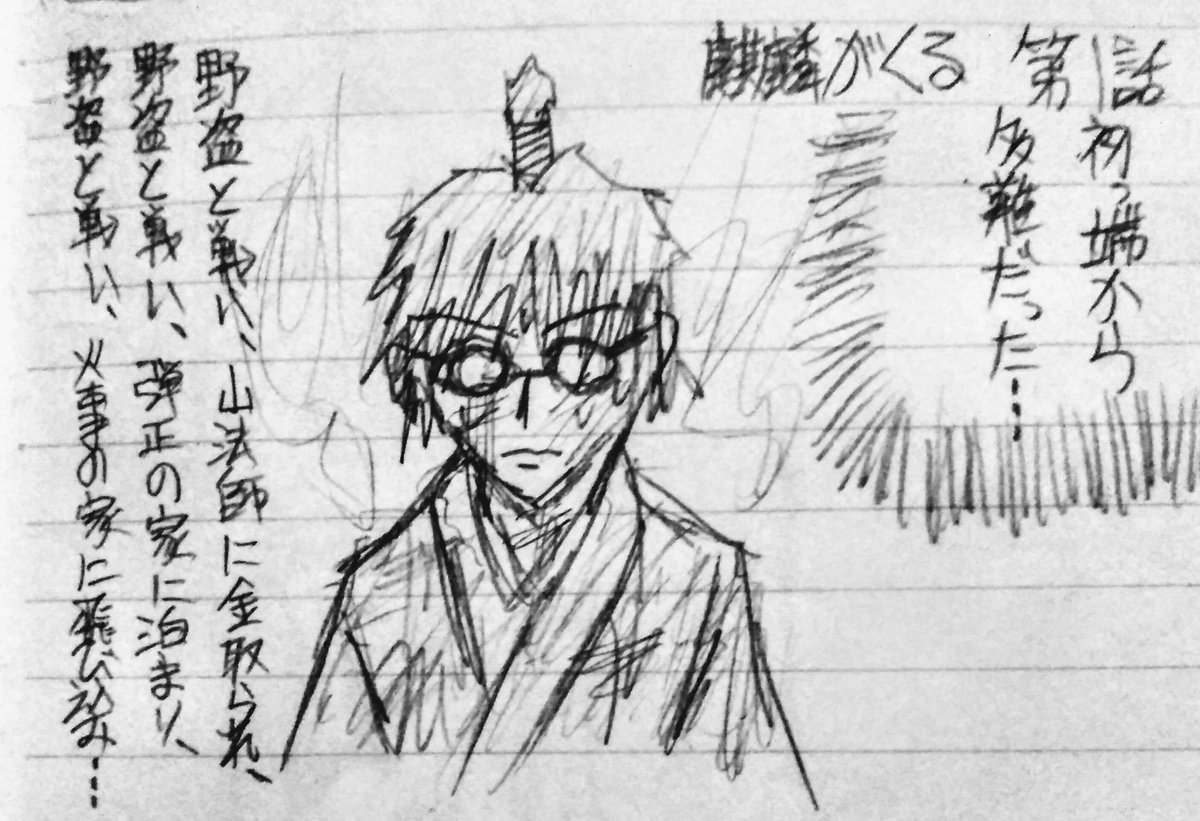 麒麟がくる 第1話
初っ端から
多難だった…
野盗と戦い、山法師に金取られ、
野盗と戦い、弾正の家に泊まり、
野盗と戦い、火事の家に飛び込み…